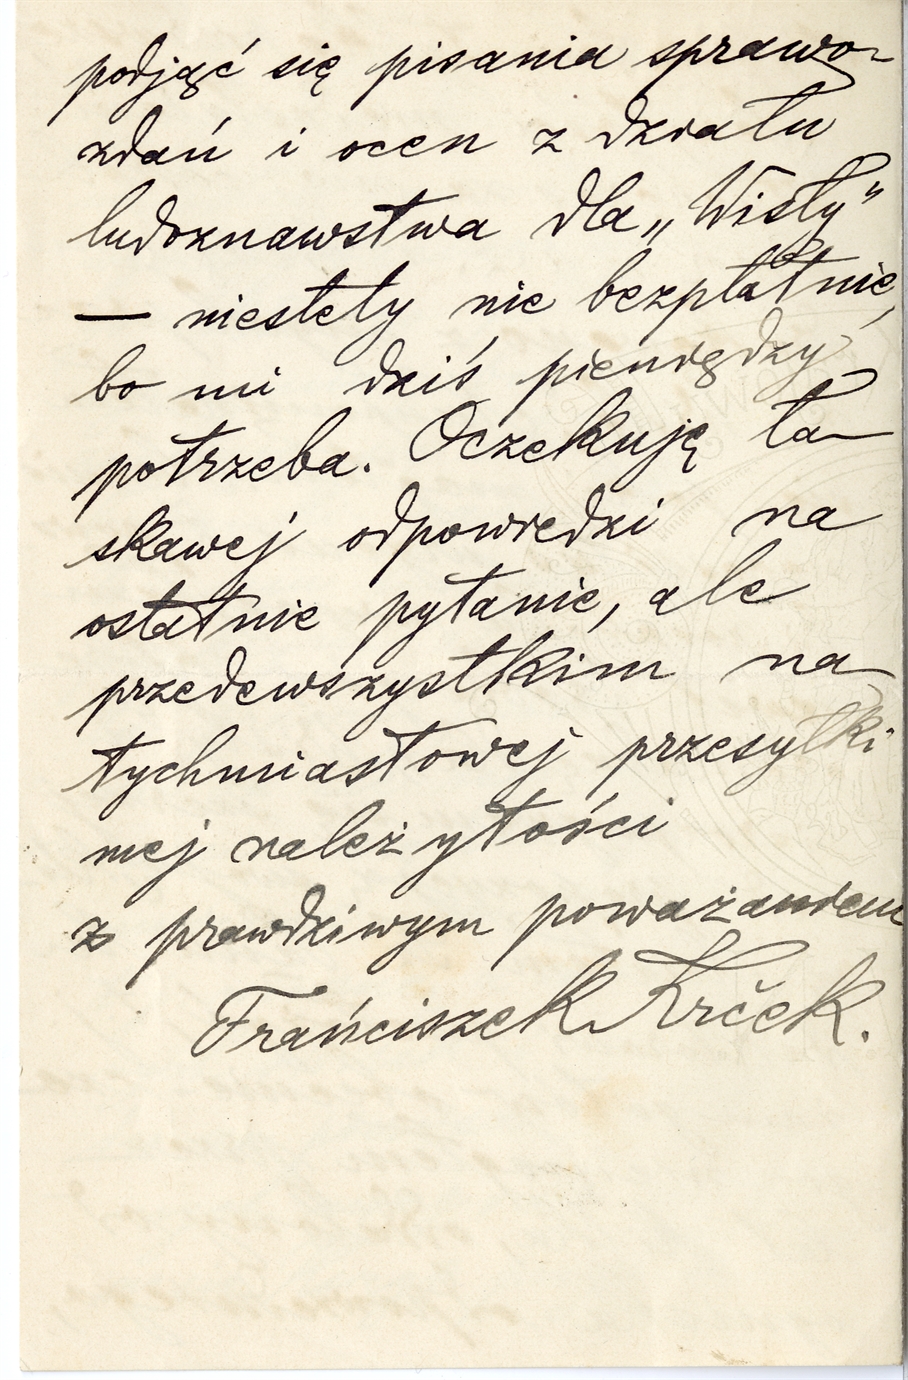 podjąć się pisania sprawo-
zdań i ocen z działu
ludoznawstwa dla „Wisły”
— niestety nie bezpłatnie,
bo mi dziś pieniędzy
potrzeba. Oczekuję ła-
skawej odpowiedzi na
ostatnie pytanie, ale
przedewszystkim na-
tychmiastowej przesyłki
mej należytości
z prawdziwym poważaniem
Frańciszek Krček.